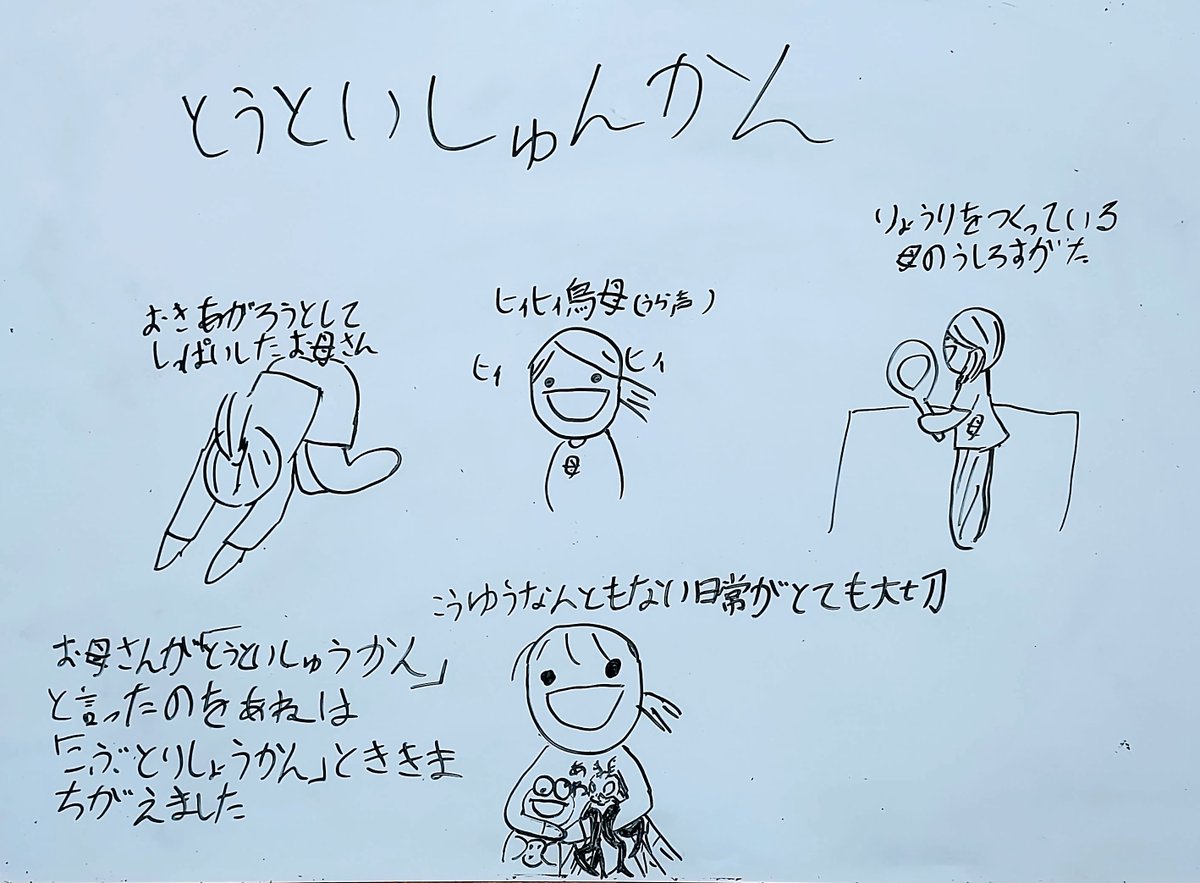 とうといしゅんかん
おきあがろうとして
しっぱいしたお母さん
ヒィヒィ鳥母(うら声)
ヒィ
ヒィ
母
りょうりをつくっている
母のうしろすがた
母
こうゆうなんともない日常がとても大切
お母さんが「とうといしゅうかん」
と言ったのをあねは
「こぶとりしょうかん」とききま
ちがえました